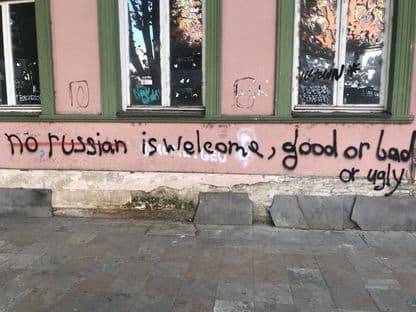 no russian is welcome, good or bad
or ugly